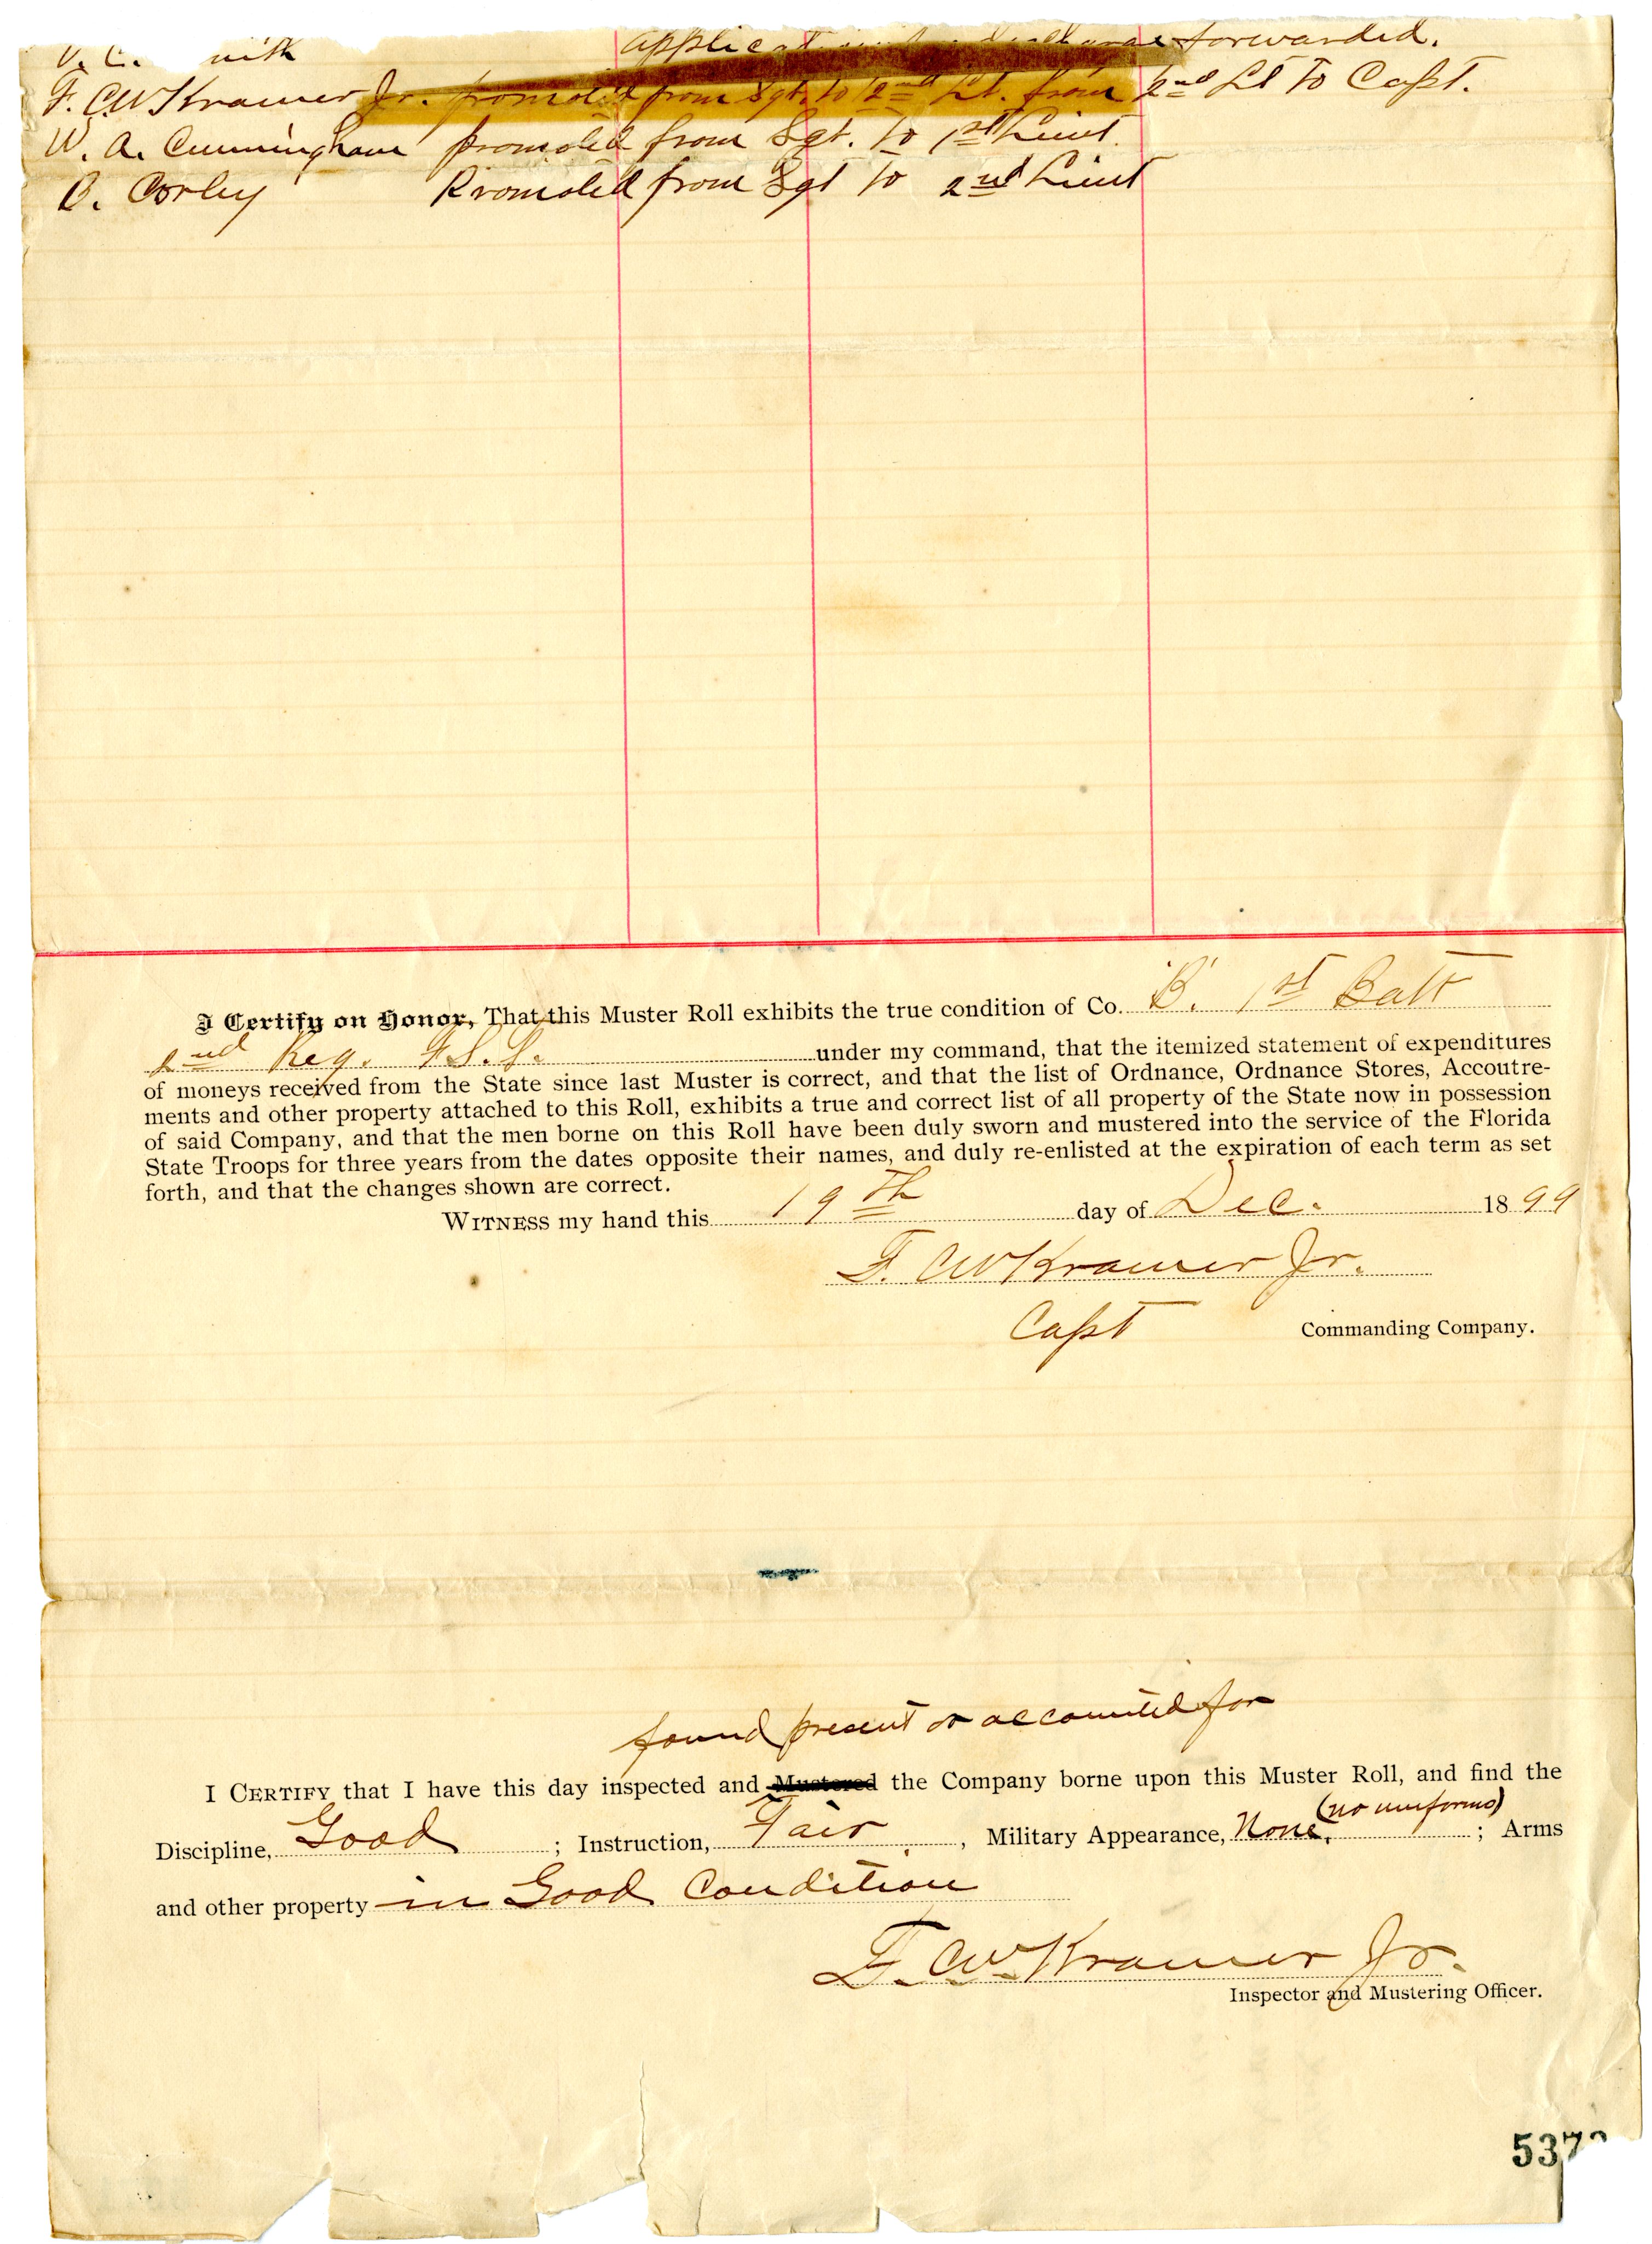 forwarded.
F. C. W. Kramer Jr. promoted from Sgt. to 2nd Lt. from 2nd Lt to Capt.
W. A. Cunningham promoted from Sgt. to 1st Lieut.
B. Corley Promoted from Sgt to 2nd Lieut
I Certify on Honor, That this Muster Roll exhibits the true condition of Co. "B". 1st Batt
2nd Reg. F.S.T. under my command, that the itemized statement of expenditures
of moneys received from the State since last Muster is correct, and that the list of Ordnance, Ordnance Stores, Accoutre-
ments and other property attached to this Roll, exhibits a true and correct list of all property of the State now in possession
of said Company, and that the men borne on this Roll have been duly sworn and mustered into the service of the Florida
State Troops for three years from the dates opposite their names, and duly re-enlisted at the expiration of each term as set
forth, and that the changes shown are correct.
WITNESS my hand this 19th day of Dec. 1899
F. C. W. Kramer Jr.
Capt Commanding Company.
found present or accounted for
I CERTIFY that I have this day inspected and Mustered the Company borne upon this Muster Roll, and find the
(no uniforms)
Discipline, Good ; Instruction, Fair , Military Appearance, None, ; Arms
and other property in Good Condition
F. C. W. Kramer Jr.
Inspector and Mustering Officer.